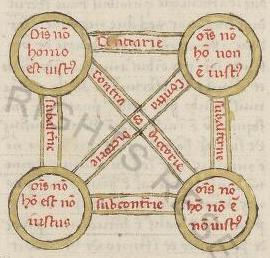 Oīs nō
homo
est iustꝰ
Contrarie
oīs nō
hō non
ē iustꝰ
subalt̄ne
contra
dictorie
contra
dictorie
subalterne
oīs nō
hō est nō
iustus
subcont̄rie
oīs nō
hō nō ē
nō iustꝰ
RIGHTS R